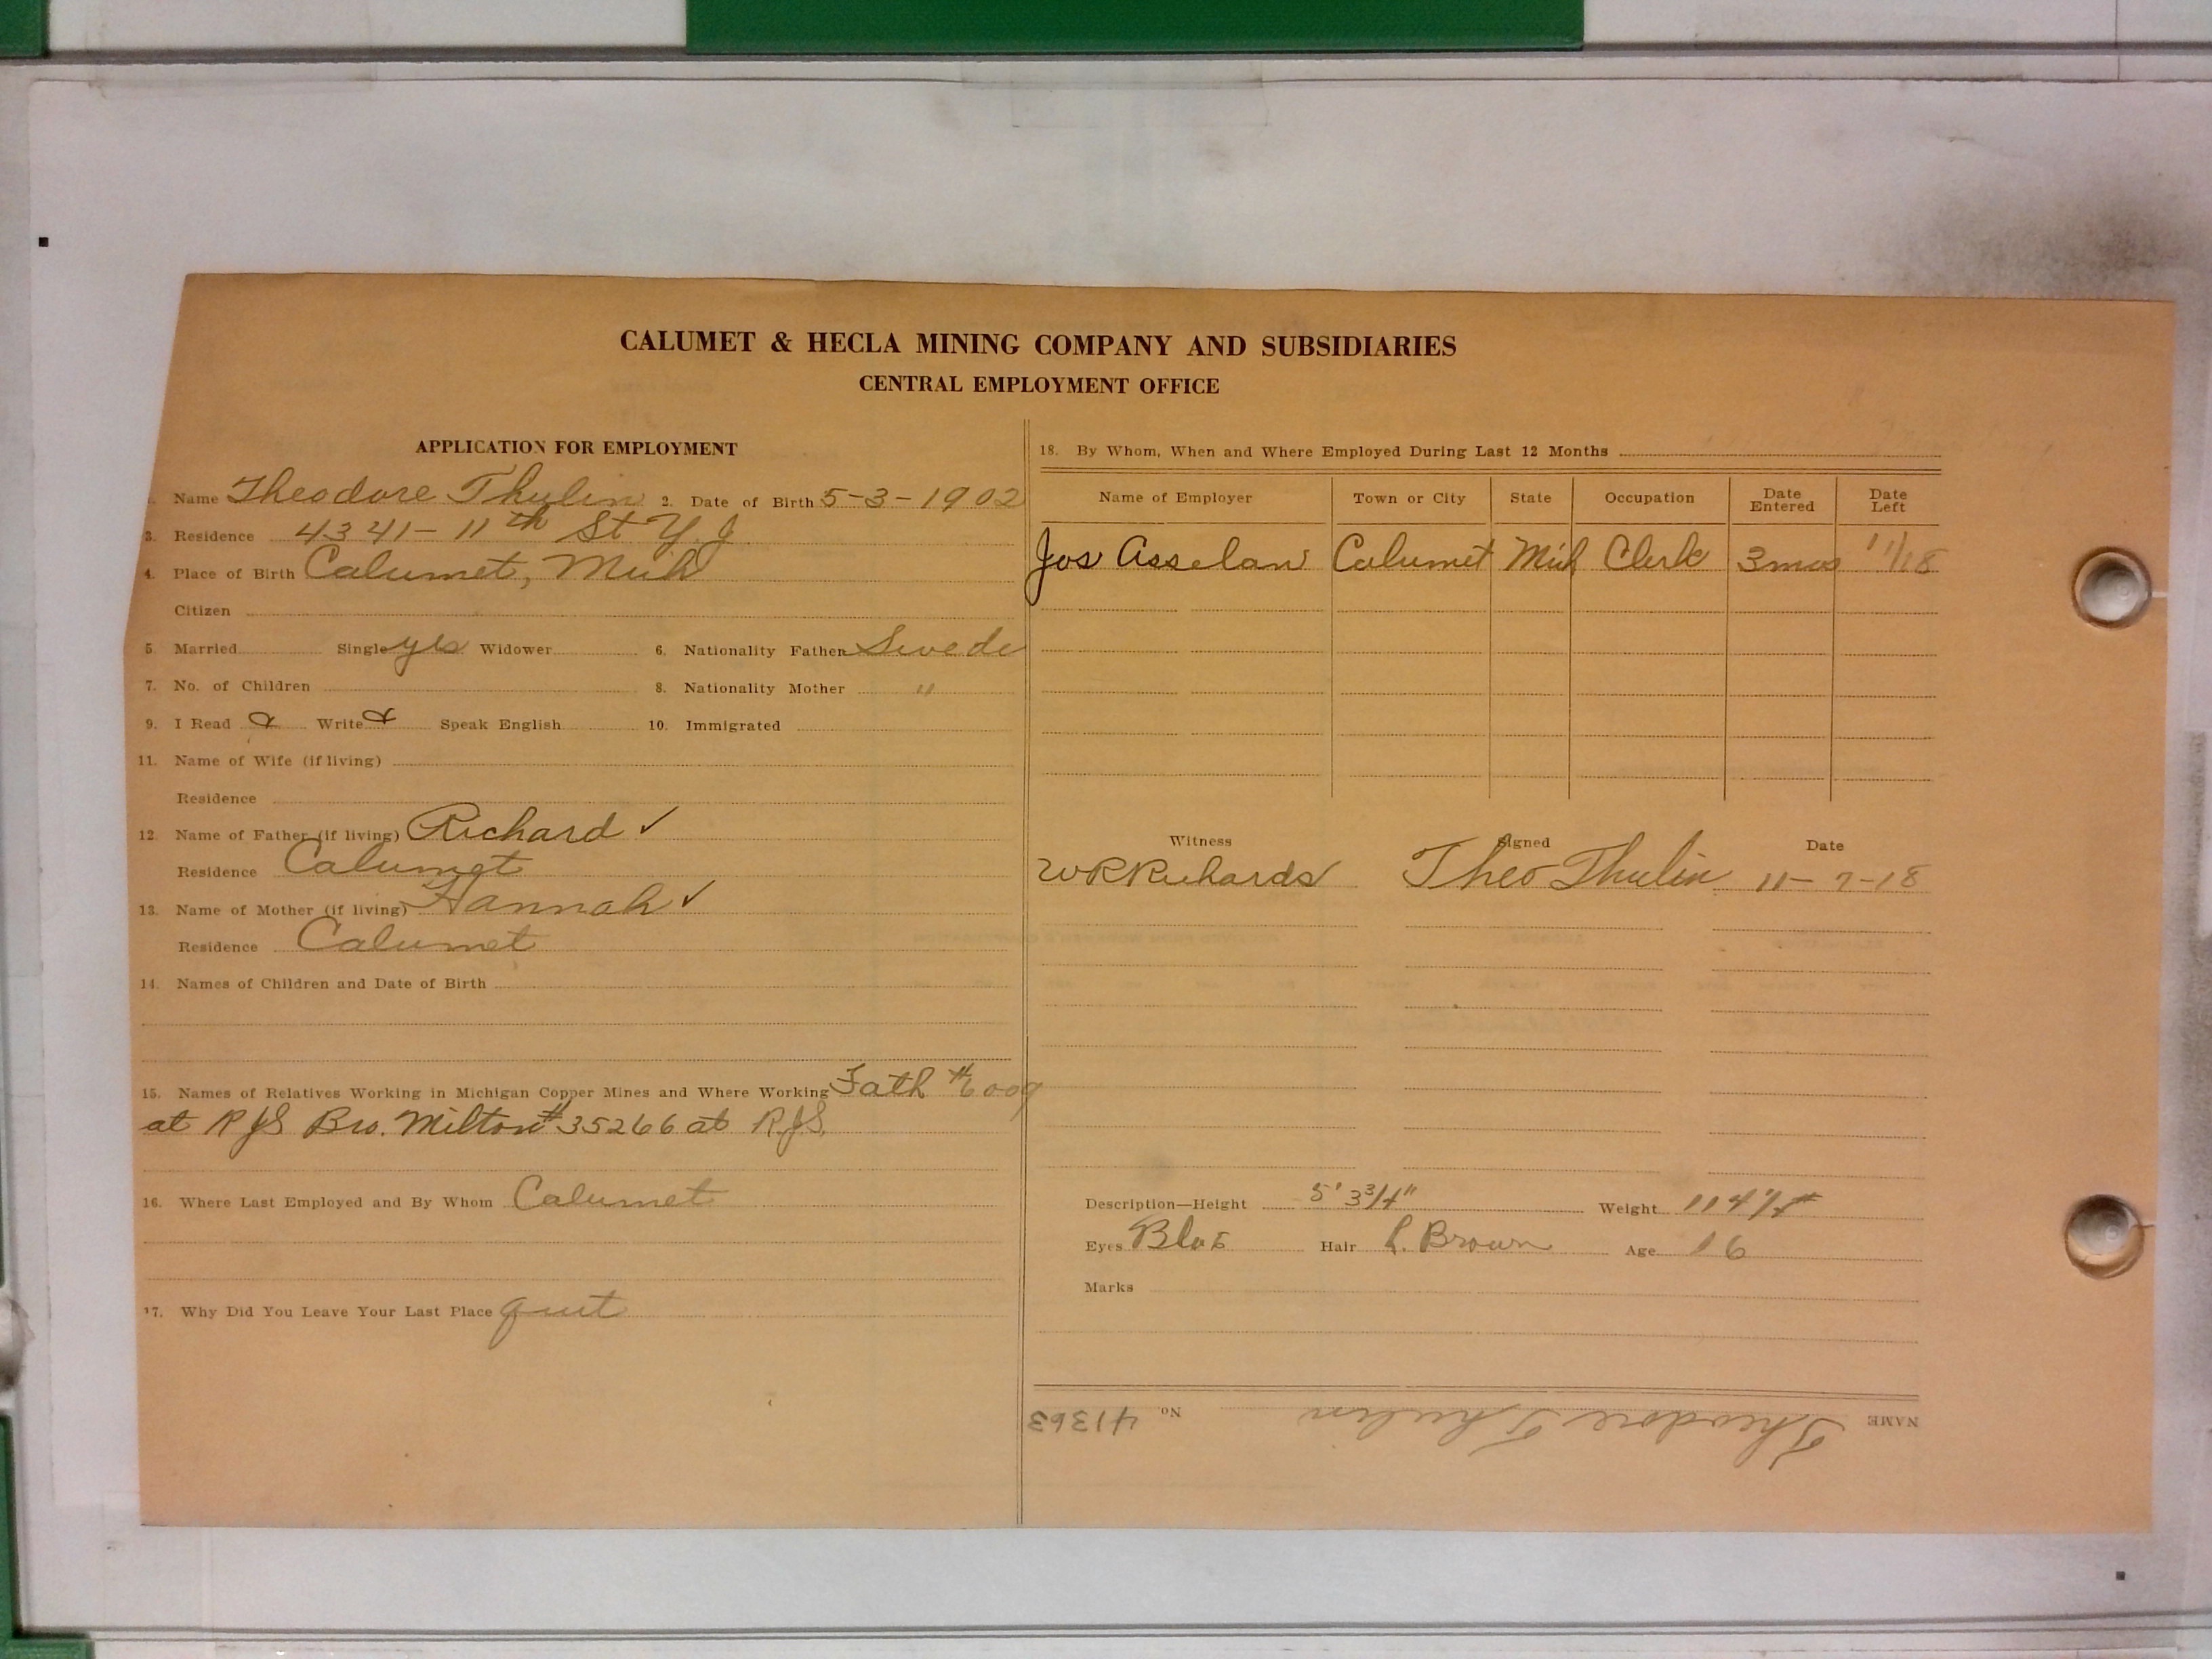 CALUMET & HECLA MINING COMPANY AND SUBSIDIARIES
CENTRAL EMPLOYMENT OFFICE
APPLICATION FOR EMPLOYMENT
1. Name Theodore Thulin 2. Date of Birth 5-3-1902
3. Residence 4341- 11th St Y.J
4. Place of Birth Calumet, Mich
Citizen
5. Married Single yes Widower 6. Nationality Father Swede
7. No. of Children 8. Nationality Mother "
9. I Read & Write & Speak English 10. Immigrated
11. Name of Wife (if living)
Residence
12. Name of Father (if living) Richard ✓
Residence Calumet
13. Name of Mother (if living) Hannah ✓
Residence Calumet
14. Names of Children and Date of Birth
15. Names of Relatives Working in Michigan Copper Mines and Where Working Fath #6009
at RJS Bro. Milton #35266 at RJS.
16. Where Last Employed and By Whom Calumet
17. Why Did You Leave Your Last Place quit
18. By Whom, When and Where Employed During Last 12 Months
Name of Employer Town or City State Occupation Date Entered Date Left
Jos Asselan Calumet Mich Clerk 3mos 11/18
Witness Signed Date
WR Richards Theo Thulin 11-7-18
Description—Height 5' 3 3/4" Weight 114 #
Eyes Blue Hair L. Brown Age 16
Marks
NAME Theodore Thulin No. 41363